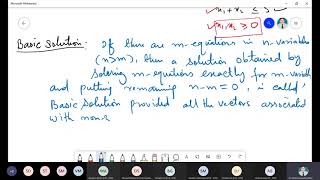 x₁+x₂ ≤ 5
x₁, x₂ ≥ 0
Basic Solution: If there are m-equations in n-variables
(n>m), then a solution obtained by
solving m-equations exactly for m-variables
and putting remaining n-m=0, is called
Basic solution provided all the vectors associated
with non-z